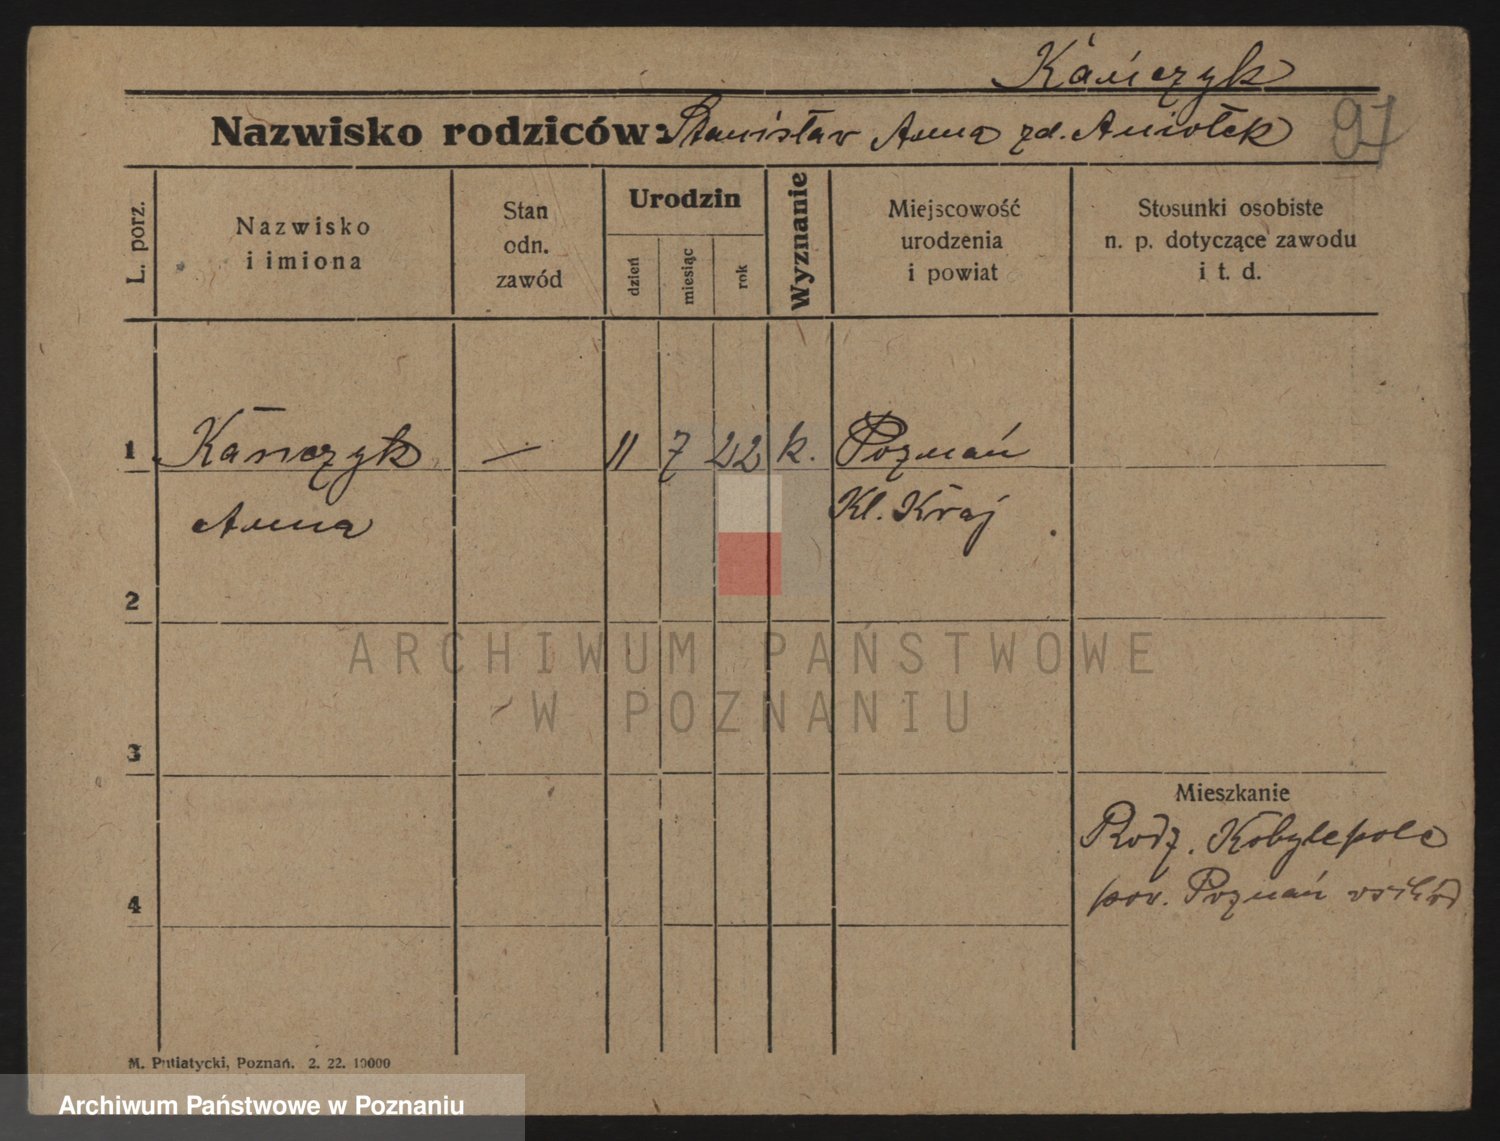 Kańczyk
Nazwisko rodziców: Stanisław Anna zd. Aniołek
97
L. porz.
Nazwisko
i imiona
Stan
odn.
zawód
Urodzin
dzień
miesiąc
rok
Wyznanie
Miejscowość
urodzenia
i powiat
Stosunki osobiste
n. p. dotyczące zawodu
i t. d.
1 Kańczyk — 11 7 22 k. Poznań
Anna Kl. Kraj
2
ARCHIWUM PAŃSTWOWE
W POZNANIU
3
Mieszkanie
Rodz. Kobylepole
4 pow. Poznań
M. Putiatycki, Poznań. 2. 22. 10000
Archiwum Państwowe w Poznaniu